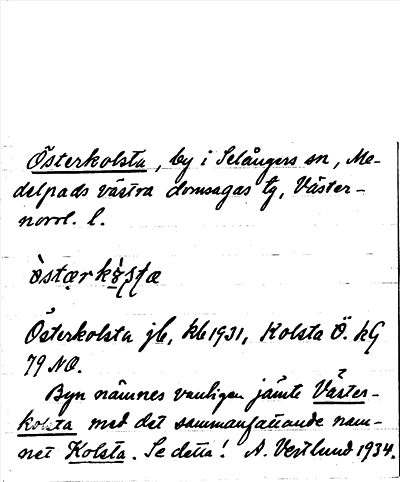 Österkolsta, by i Selångers sn, Me-
delpads västra domsagas tg, Väster-
norrl. l.
òstærkɷ̀ʂʈa
Österkolsta jb, kb 1931, Kolsta Ö. kG
79 NO.
Byn nämnes vanligen jämte Väster-
kolsta med det sammanfattande nam-
net Kolsta. Se detta! A. Vestlund 1934.